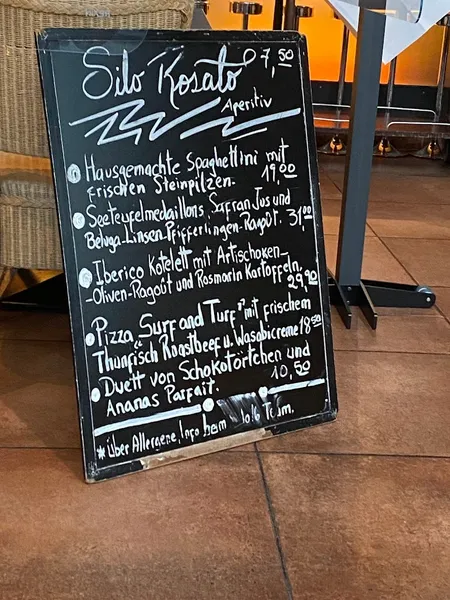 Silo Rosato 7,50
Aperitiv
Hausgemachte Spaghettini mit
frischen Steinpilzen. 19,00
Seeteufelmedaillons, Safran Jus und
Beluga-Linsen-Pfifferlingen-Ragout. 31,00
Iberico Kotelett mit Artischoken-
-Oliven-Ragout und Rosmarin Kartoffeln
29,90
Pizza "Surf and Turf" mit frischem
Thunfisch Roastbeef u. Wasabicreme 18,50
Duett von Schokotörtchen und
Ananas Parfait. 10,50
*Über Allergene Info beim Team.